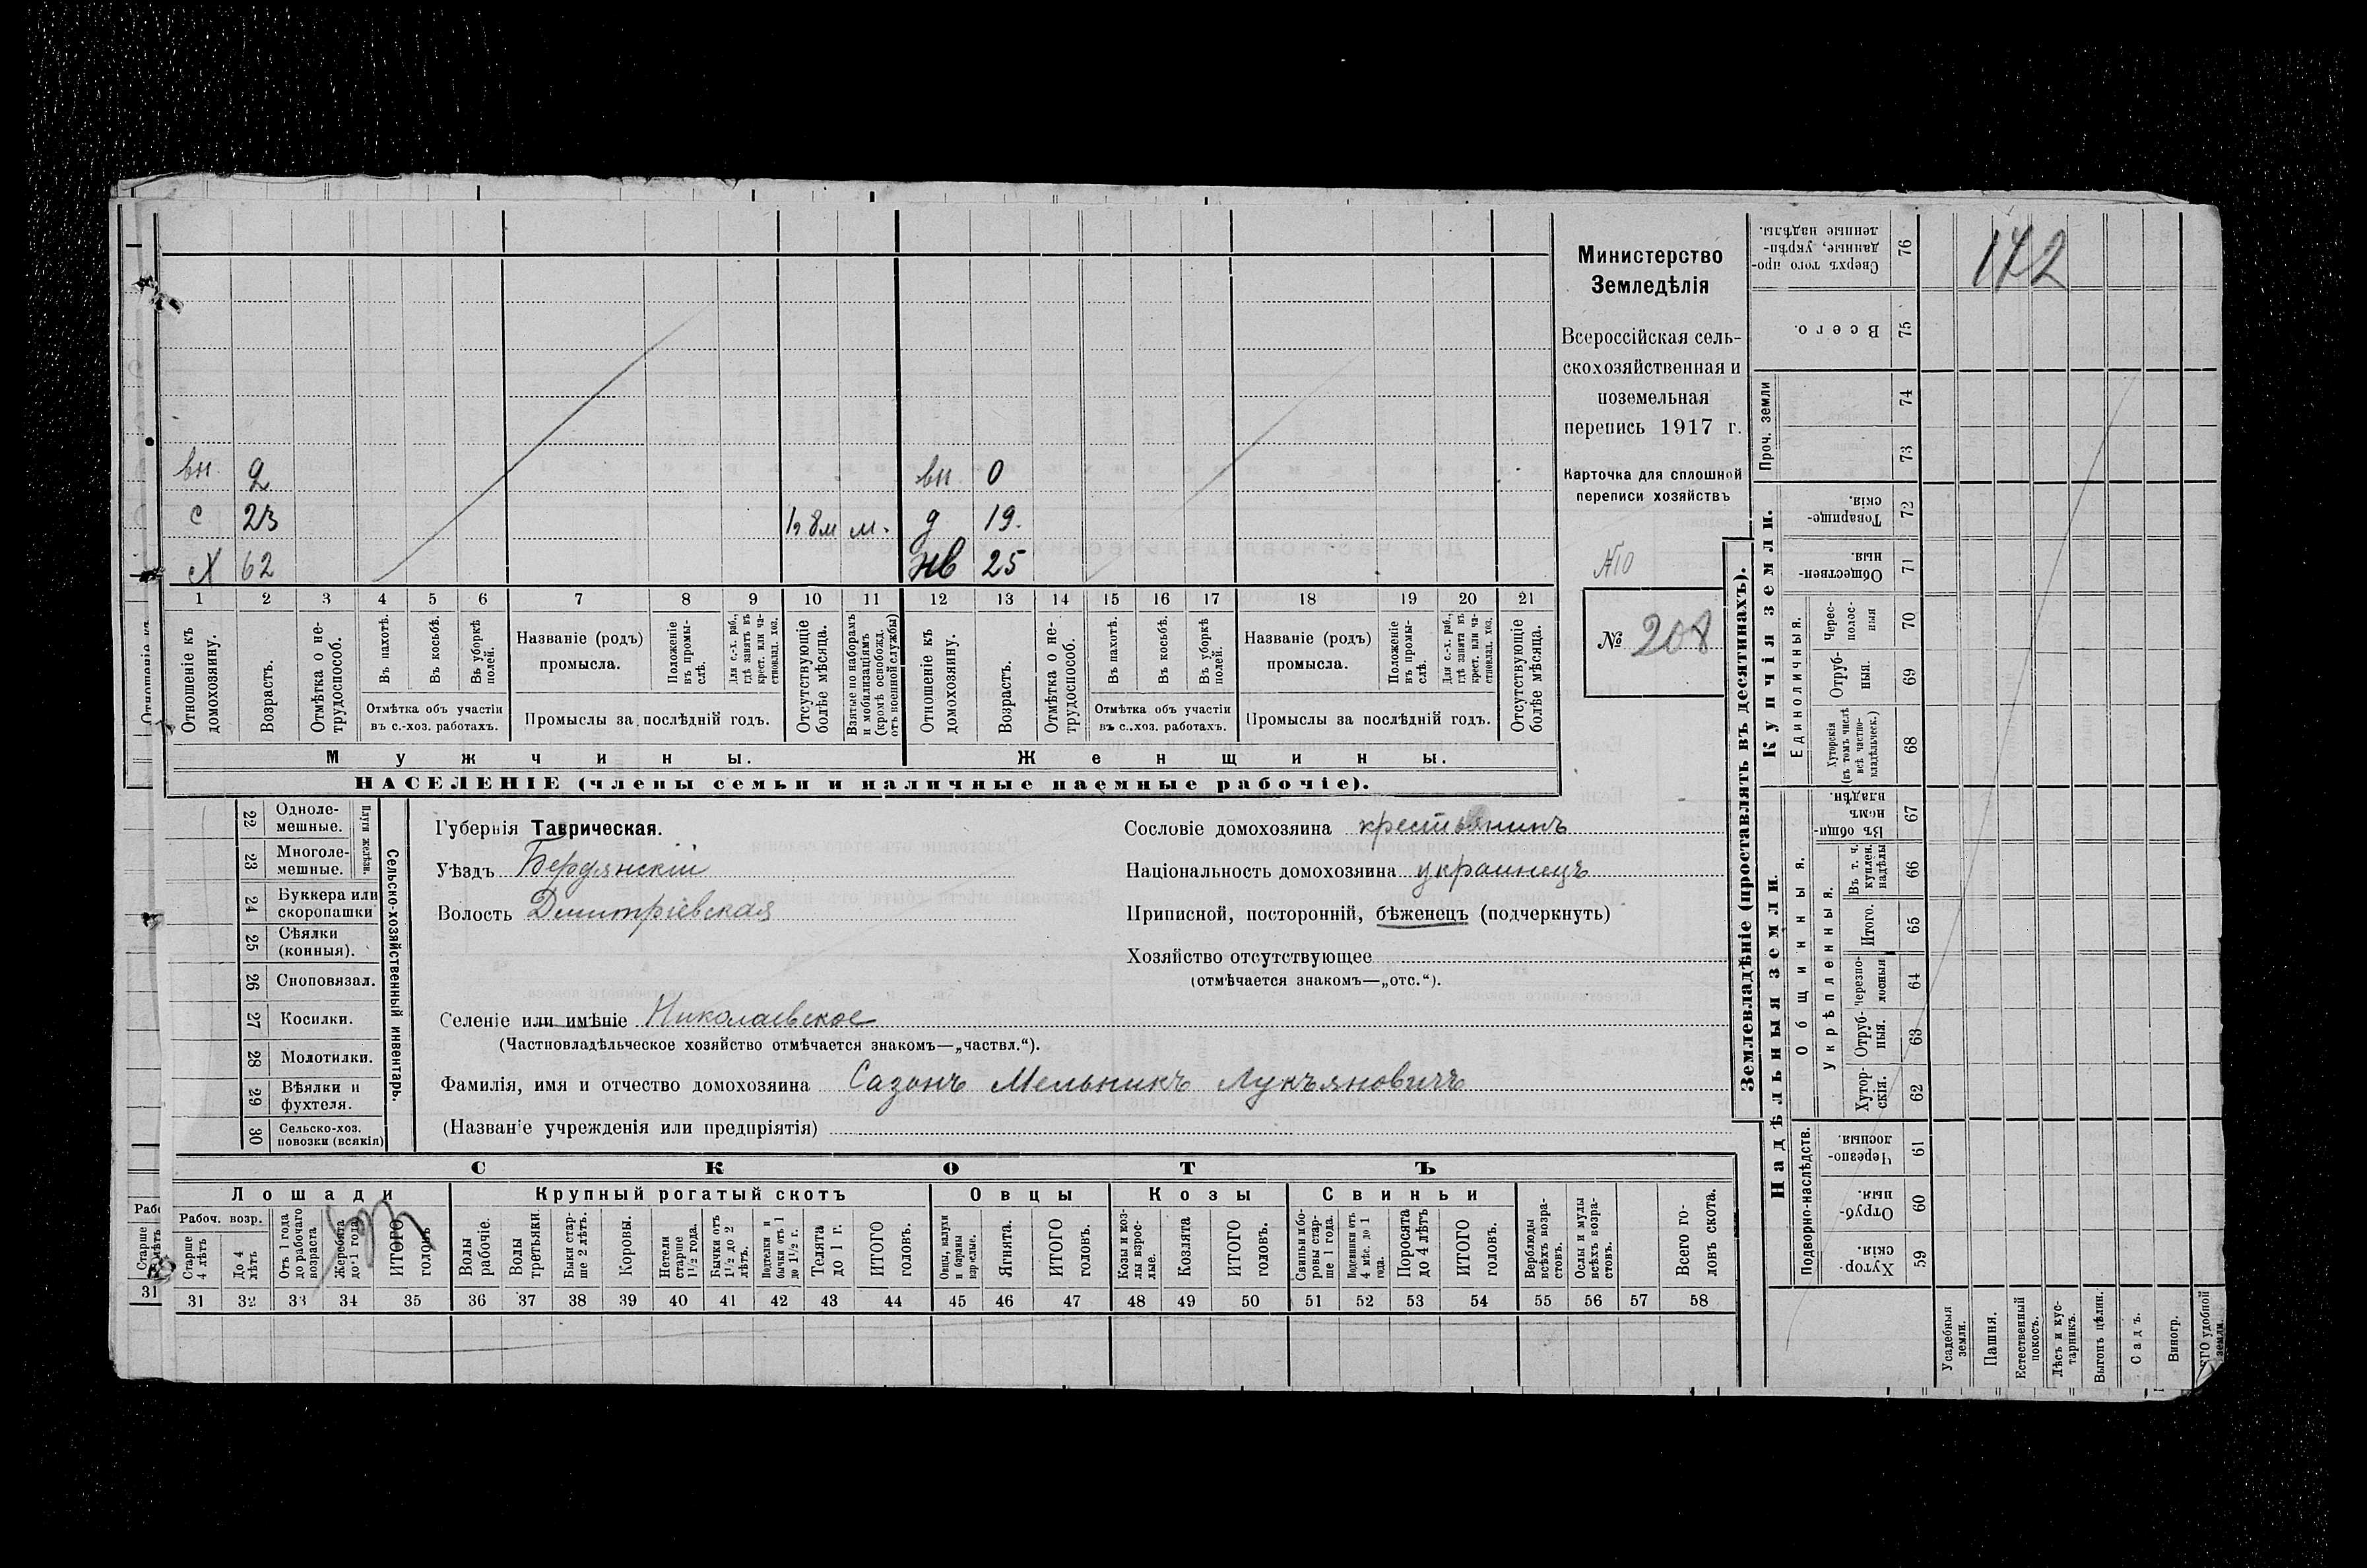 Министерство
Земледѣлія
Всероссійская сель-
скохозяйственная и
поземельная
перепись 1917 г.
Карточка для сплошной
переписи хозяйствъ
№ 208
172
вн. 2 вн 0
с 23 м. д 19.
х 62 нв 25
1 2 3 4 5 6 7 8 9 10 11 12 13 14 15 16 17 18 19 20 21
Отношеніе къ домохозяину.
Возрастъ.
Отмѣтка о не-трудоспособ.
Въ пахотѣ.
Въ косьбѣ.
Въ уборкѣ полей.
Отмѣтка объ участіи
въ с.-хоз. работахъ.
Названіе (родъ)
промысла.
Положеніе въ промы-слѣ.
Для с.-х. раб., гдѣ занятъ въ крест. или ча-стновлад. хоз.
Промыслы за послѣдній годъ.
Отсутствующіе болѣе мѣсяца.
Взятые по наборамъ и мобилизаціямъ (кромѣ освобожд. отъ военной службы)
Отношеніе къ домохозяину.
Возрастъ.
Отмѣтка о не-трудоспособ.
Въ пахотѣ.
Въ косьбѣ.
Въ уборкѣ полей.
Отмѣтка объ участіи
въ с.-хоз. работахъ.
Названіе (родъ)
промысла.
Положеніе въ промы-слѣ.
Для с.-х. раб., гдѣ занята въ крест. или ча-стновлад. хоз.
Промыслы за послѣдній годъ.
Отсутствующіе болѣе мѣсяца.
Мужчины. Женщины.
НАСЕЛЕНІЕ (члены семьи и наличные наемные рабочіе).
22 Одноле-мешные.
23 Многоле-мешные.
Плуги желѣзн.
24 Буккера или скоропашки
25 Сѣялки (конныя).
26 Сноповязал.
27 Косилки.
28 Молотилки.
29 Вѣялки и фухтеля.
30 Сельско-хоз. повозки (всякія)
Сельско-хозяйственный инвентарь.
Губернія Таврическая.
Уѣздъ Бердянскій
Волость Дмитріевская
Сословіе домохозяина крестьянинъ
Національность домохозяина украинецъ
Приписной, посторонній, бѣженецъ (подчеркнуть)
Хозяйство отсутствующее
(отмѣчается знакомъ—„отс.“).
Селеніе или имѣніе Николаевское
(Частновладѣльческое хозяйство отмѣчается знакомъ—„частвл.“).
Фамилія, имя и отчество домохозяина Сазонъ Мельникъ Лукъяновичъ
(Названіе учрежденія или предпріятія)
СКОТЪ
Лошади Крупный рогатый скотъ Овцы Козы Свиньи
Рабоч. возр.
Старше 4 лѣтъ
До 4 лѣтъ
Отъ 1 года до рабочаго возраста
Жеребята до 1 года
ИТОГО головъ
Волы рабочіе.
Волы третьяки.
Быки стар-ше 2 лѣтъ.
Коровы.
Нетели старше 1½ года.
Бычки отъ 1½ до 2 лѣтъ.
Подтелки и бычки отъ 1 до 1½ г.
Телята до 1 г.
ИТОГО головъ.
Овцы, валухи и бараны взрослые.
Ягнята.
ИТОГО головъ.
Козы и коз-лы взрос-лые.
Козлята
ИТОГО головъ.
Свиньи и бо-ровы стар-ше 1 года.
Подсвинки отъ 4 мѣс. до 1 года.
Поросята до 4 лѣтъ
ИТОГО головъ.
Верблюды всѣхъ возра-стовъ.
Ослы и мулы всѣхъ возра-стовъ.
Всего го-ловъ скота.
31 32 33 34 35 36 37 38 39 40 41 42 43 44 45 46 47 48 49 50 51 52 53 54 55 56 57 58
Землевладѣніе (проставлять въ десятинахъ).
Надѣльныя земли.
Купчія земли.
Проч. земли
Подворно-наслѣдств.
Общинныя.
Укрѣпленныя.
Единоличныя.
Сверхъ того про-даны, укрѣп-ленные надѣлы. 76
Всего. 75
74
73
Товарище-скія. 72
Обществен-ныя. 71
Черес-полос-ныя 70
Отруб-ныя. 69
Хуторскія (въ томъ числѣ всѣ частно-владѣльческ.) 68
Въ общи-номъ владѣн. 67
Въ т. ч. куплен. надѣлы 66
Итого. 65
Черезпо-лосныя 64
Отруб-ныя. 63
Хутор-скія. 62
Черезпо-лосныя. 61
Отруб-ныя. 60
Хутор-скія. 59
Усадебныя земли.
Пашня.
Естественный покосъ.
Лѣсъ и кус-тарникъ.
Выгонъ цѣлин.
Садъ.
Виногр.
удобной земли.